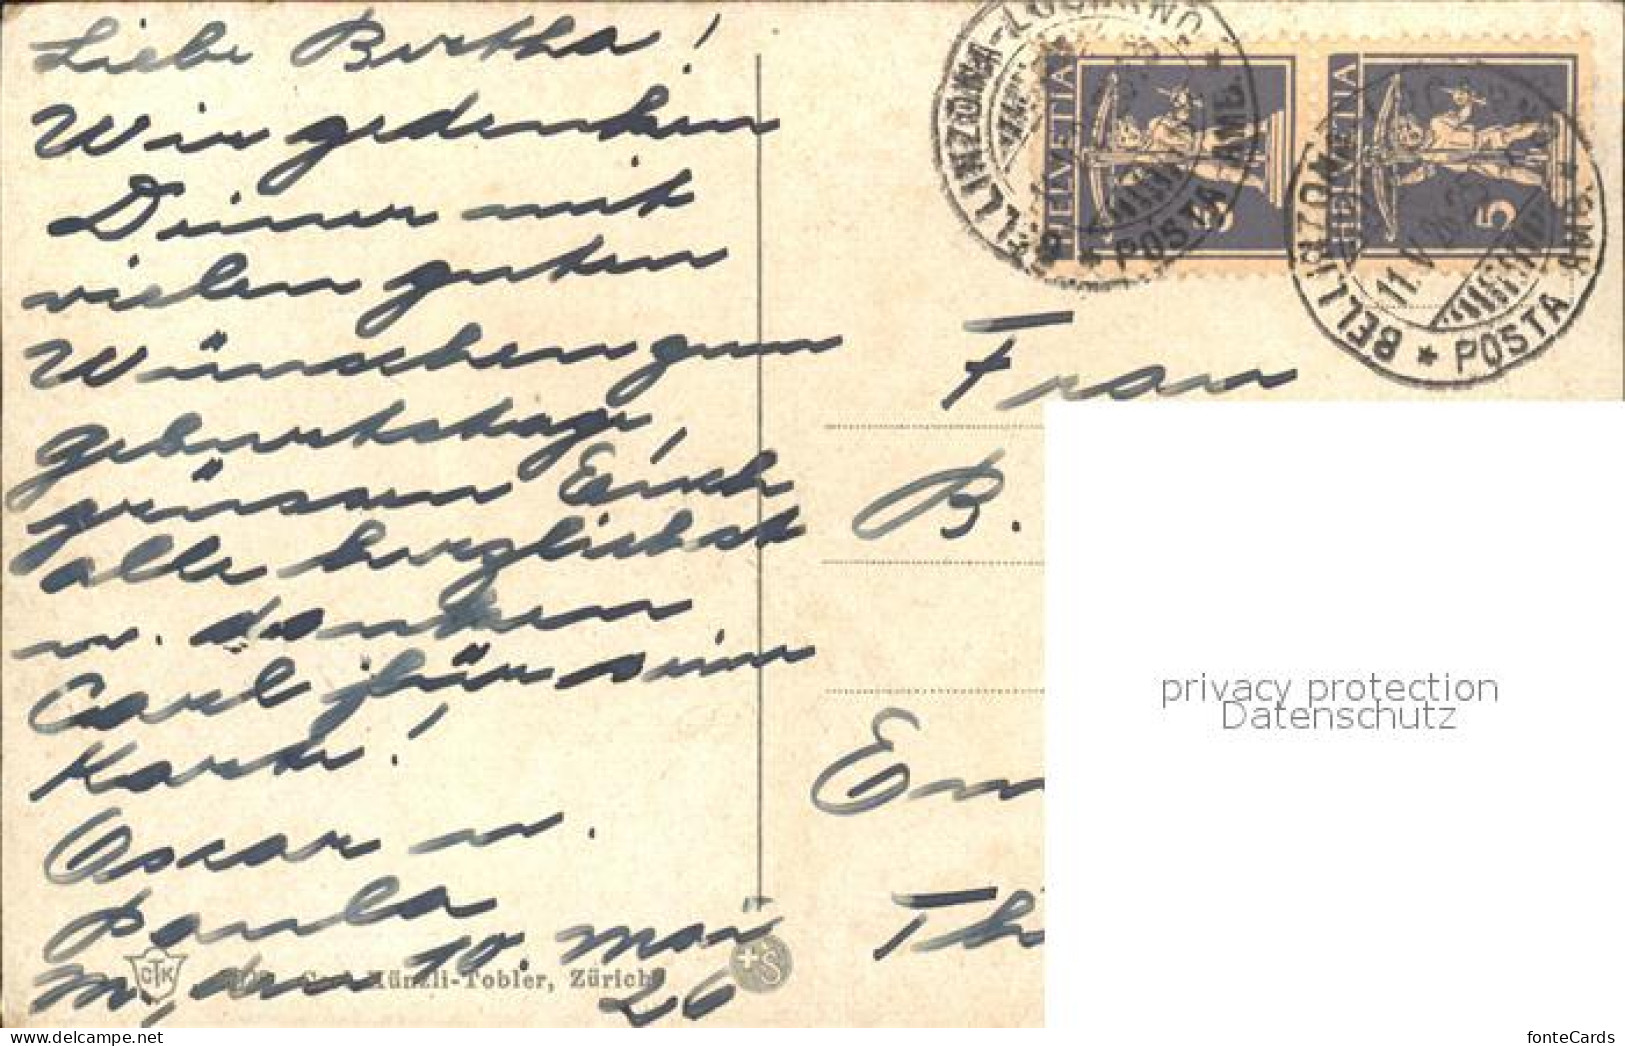 Liebe Bertha!
Wir gedenken
Deiner mit
vielen guten
Wünschen zum
Geburtstage,
grüssen Euch
alle herzlichst
u. danken
Carl für sein
Karte!
Oscar u.
Paula
M, den 10. Mai
26
CTK
Künzli-Tobler, Zürich
+S
BELLINZONA-LOCARNO
* POSTA AMB. *
HELVETIA
5
HELVETIA
5
BELLINZONA
11.V.26
* POSTA AMB. *
Frau
B.
Em
Th
privacy protection
Datenschutz
fonteCards